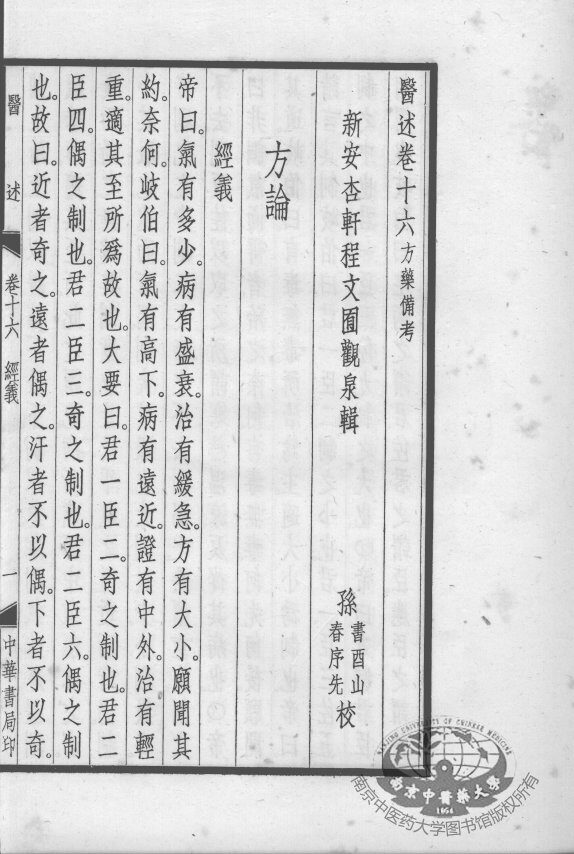 醫述卷十六 方藥備考
新安杏軒程文囿觀泉輯
孫 書酉山
春序先 校
方論
經義
帝曰。氣有多少。病有盛衰。治有緩急。方有大小。願聞其
約。奈何。岐伯曰。氣有高下。病有遠近。證有中外。治有輕
重。適其至所爲故也。大要曰。君一臣二。奇之制也。君二
臣四。偶之制也。君二臣三。奇之制也。君二臣六。偶之制
也。故曰。近者奇之。遠者偶之。汗者不以偶。下者不以奇。
醫述 卷十六 經義 一 中華書局印
NANJING UNIVERSITY OF CHINESE MEDICINE
南京中醫藥大學
1954
南京中医药大学图书馆版权所有